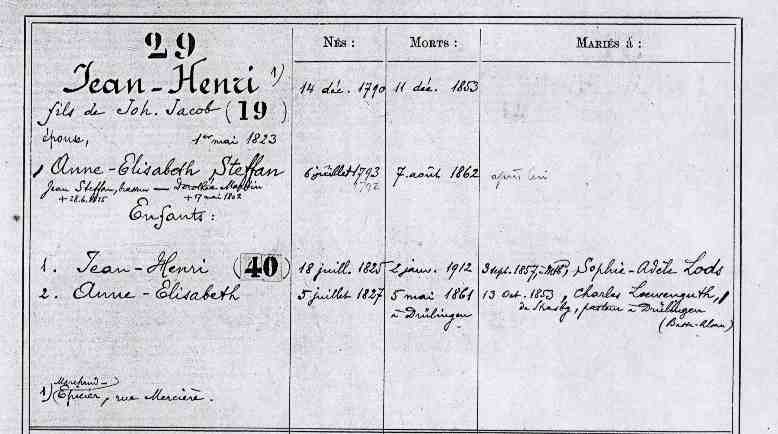 29
NÉS : MORTS : MARIÉS á :
Jean-Henri 1) 14 déc. 1790 11 déc. 1853
fils de Joh. Jacob (19)
épouse, 1er mai 1823
Anne-Elisabeth Steffan 6 juillet 1793 7. août 1862 après lui
1792
Jean Steffan, brasseur — Dorothée
+ 28.6.1815 + 7 mai 1802
Enfants :
1. Jean-Henri (40) 18 juill. 1825 2 janv. 1912 3 sept. 1857, Sophie-Adèle Lods
2. Anne-Elisabeth 5 juillet 1827 5 mai 1861 13 Oct. 1853, Charles Loewenguth,
à Drulingen de Strasbg, pasteur à Drulingen
(Basse-Alsace)
Marchand-
1) Epicier, rue Mercière.